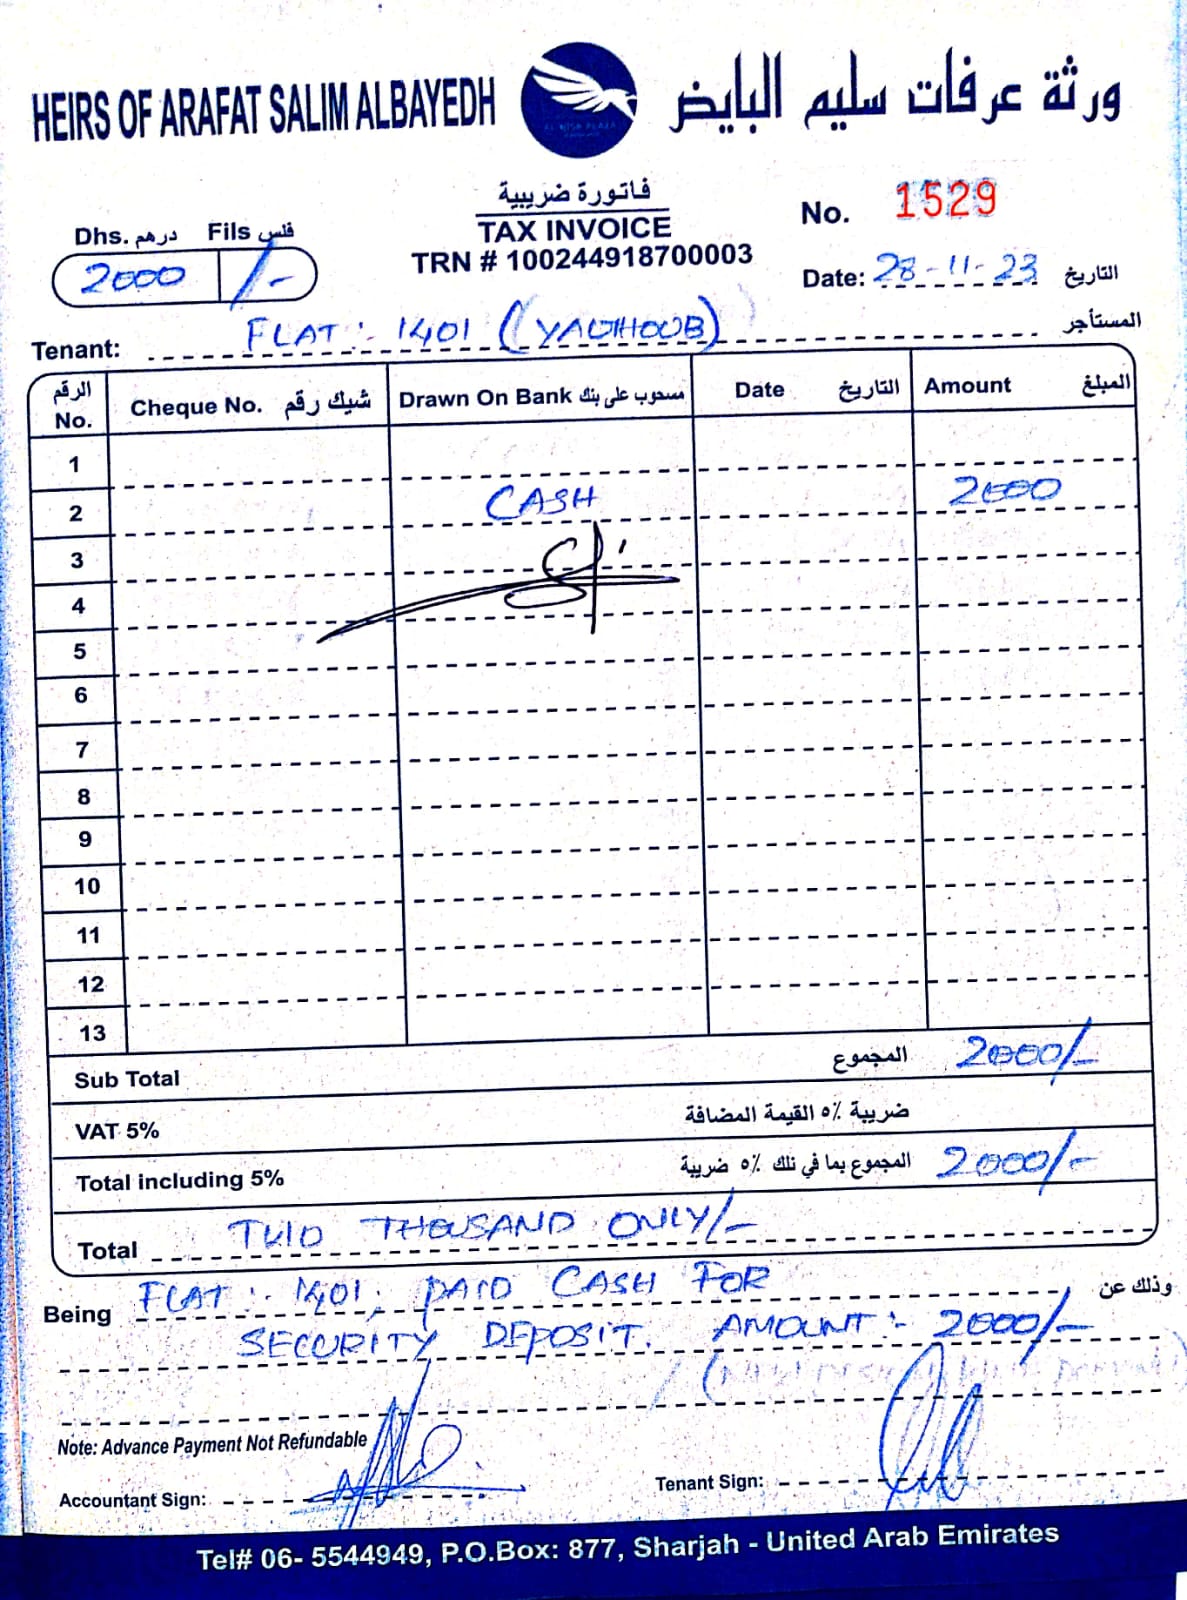 HEIRS OF ARAFAT SALIM ALBAYEDH
ورثة عرفات سليم البايض
فاتورة ضريبية
TAX INVOICE
TRN # 100244918700003
No. 1529
Dhs. درهم Fils فلس
2000 /-
Date: 28-11-23 التاريخ
Tenant: FLAT:- 1401 (YAQHOOB) المستأجر
الرقم No. Cheque No. شيك رقم Drawn On Bank مسحوب على بنك Date التاريخ Amount المبلغ
1
2 CASH 2000
3
4
5
6
7
8
9
10
11
12
13
Sub Total المجموع 2000/-
VAT 5% ضريبة ٥٪ القيمة المضافة
Total including 5% المجموع بما في تلك ٥٪ ضريبة 2000/-
Total TWO THOUSAND ONLY/-
Being FLAT:- 1401, PAID CASH FOR وذلك عن
SECURITY DEPOSIT. AMOUNT:- 2000/-
Note: Advance Payment Not Refundable
Accountant Sign:
Tenant Sign:
Tel# 06- 5544949, P.O.Box: 877, Sharjah - United Arab Emirates